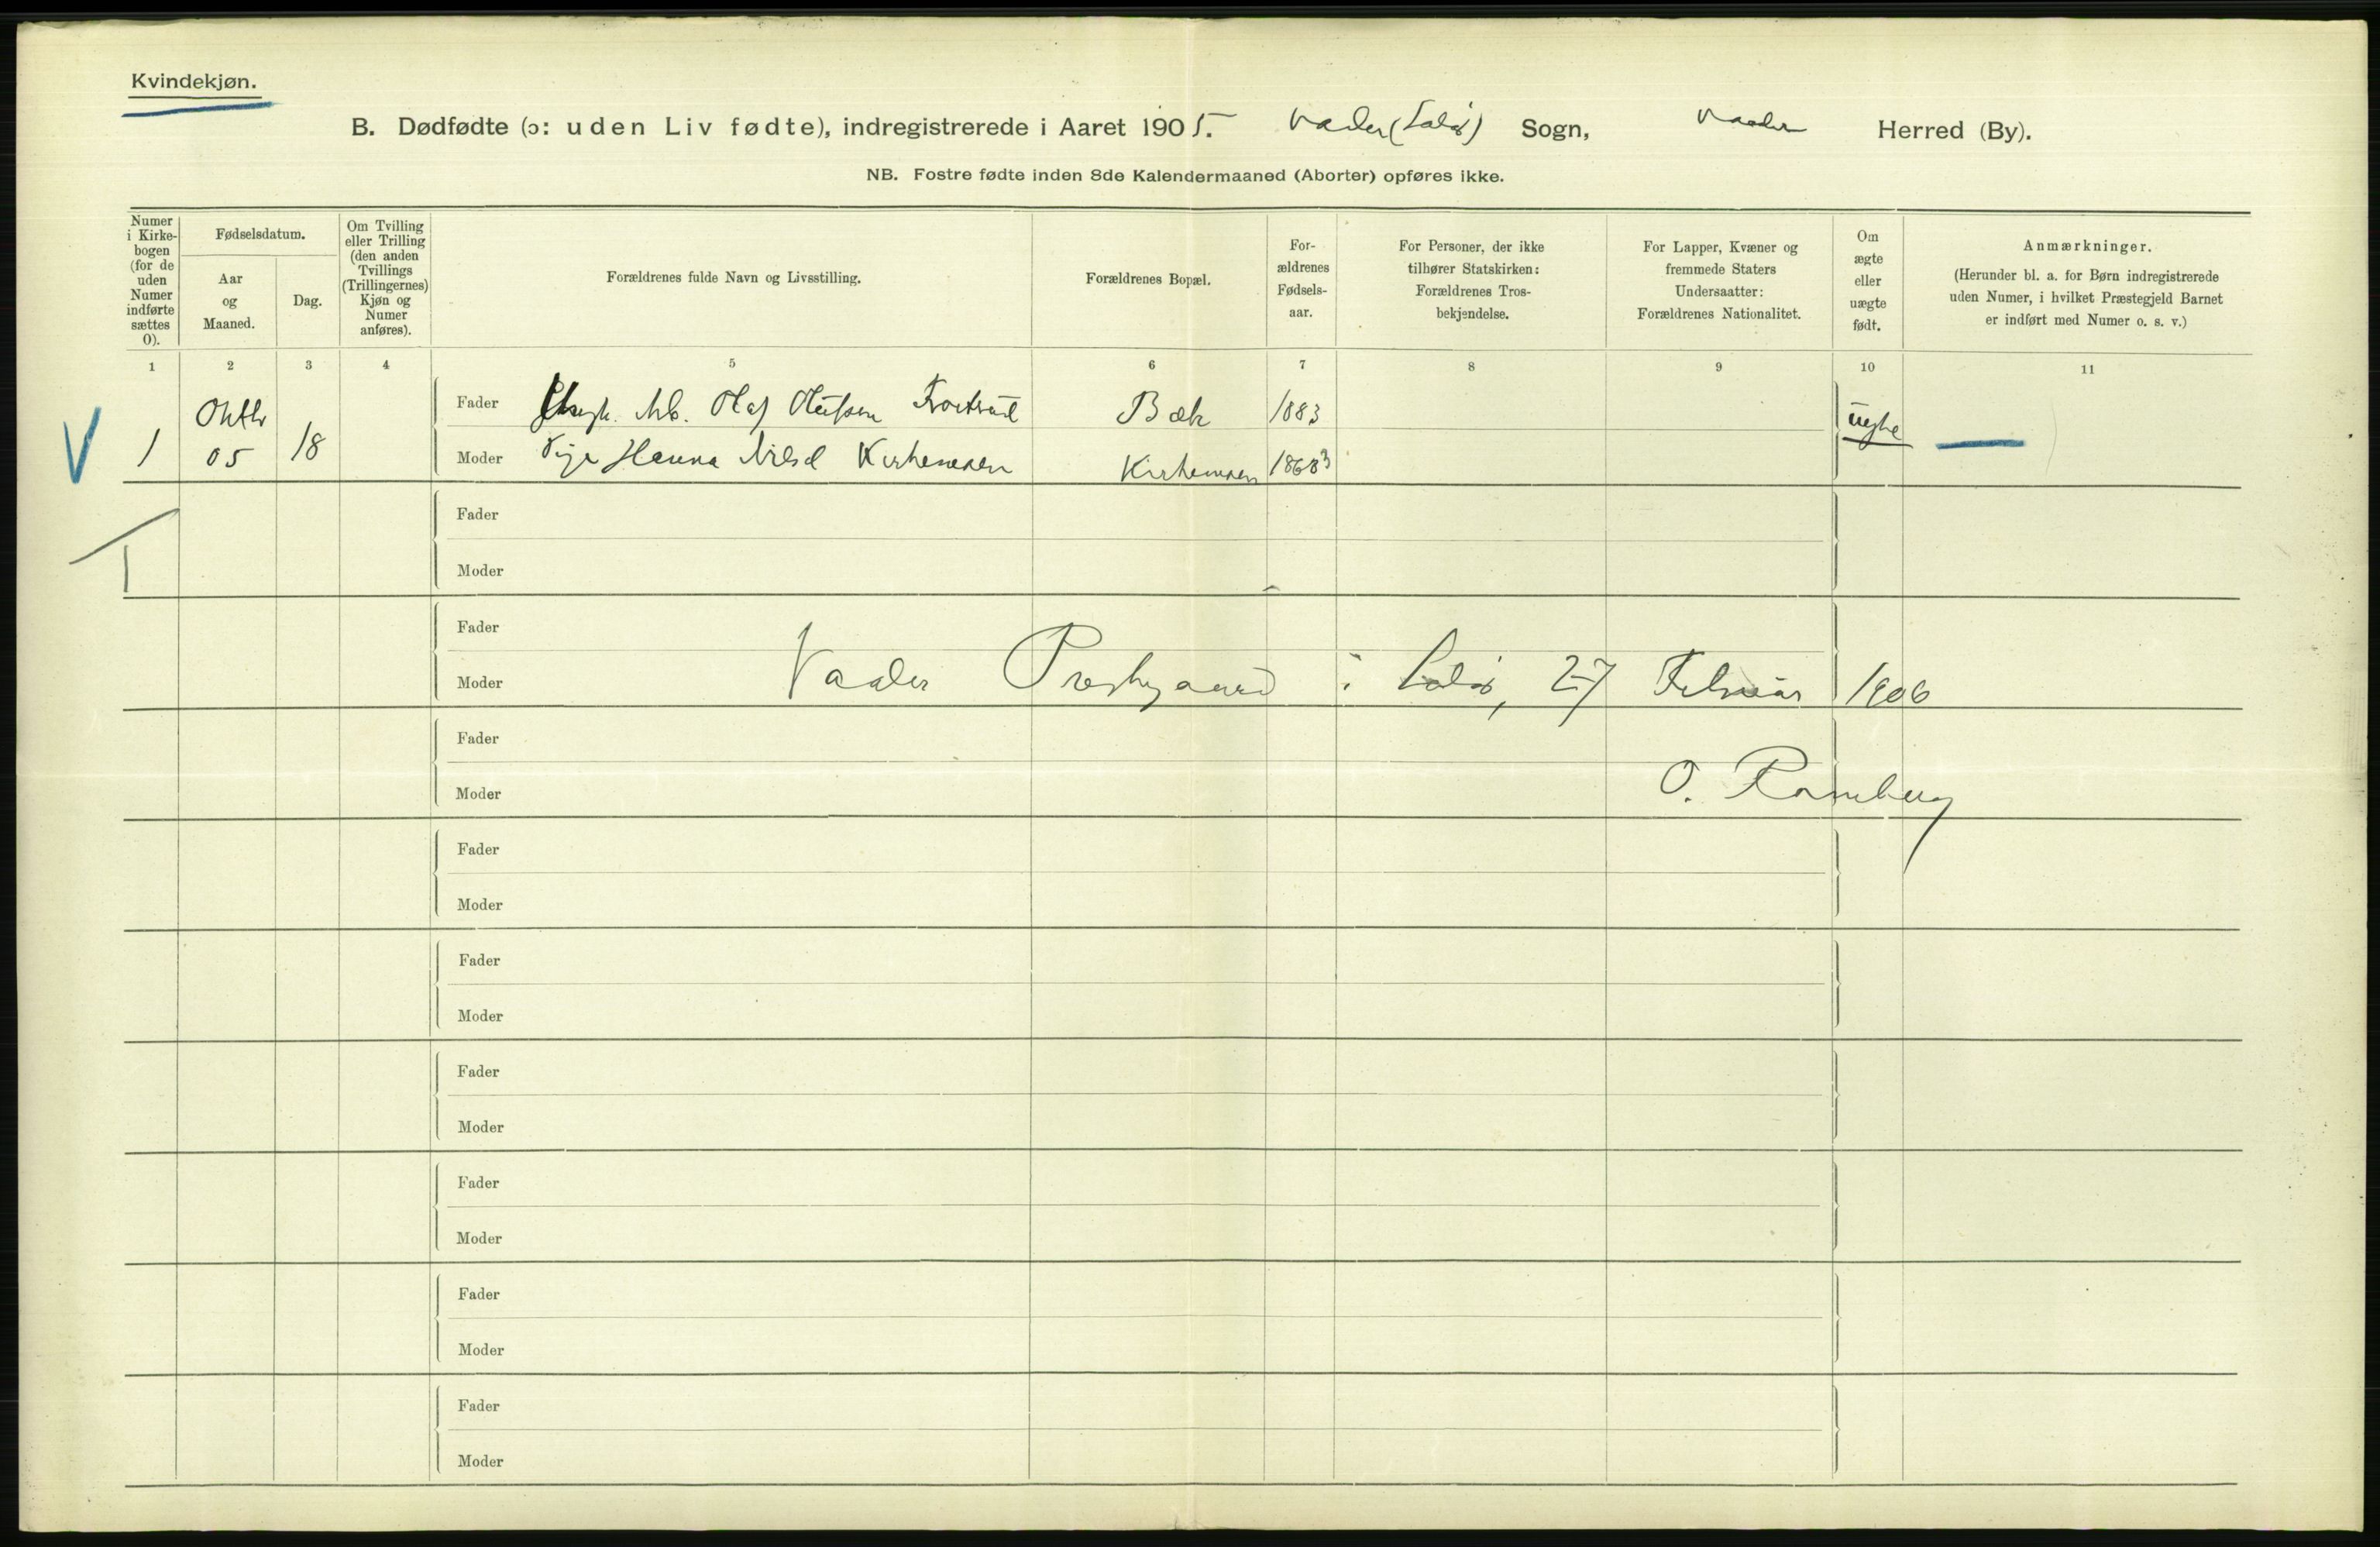 Kvindekjøn.
B. Dødfødte (ɔ: uden Liv fødte), indregistrerede i Aaret 1905. Vaaler (Solør) Sogn, Vaaler Herred (By).
NB. Fostre fødte inden 8de Kalendermaaned (Aborter) opføres ikke.
Numer i Kirke-bogen (for de uden Numer indførte sættes 0).
Fødselsdatum.
Aar og Maaned.
Dag.
Om Tvilling eller Trilling (den anden Tvillings (Trillingernes) Kjøn og Numer anføres).
Forældrenes fulde Navn og Livsstilling.
Forældrenes Bopæl.
For-ældrenes Fødsels-aar.
For Personer, der ikke tilhører Statskirken: Forældrenes Tros-bekjendelse.
For Lapper, Kvæner og fremmede Staters Undersaatter: Forældrenes Nationalitet.
Om ægte eller uægte født.
Anmærkninger.
(Herunder bl. a. for Børn indregistrerede uden Numer, i hvilket Præstegjeld Barnet er indført med Numer o. s. v.)
1 2 3 4 5 6 7 8 9 10 11
Fader Arb. Olaf Olufsen Bæk 1883
1 Oktbr 05 18 uegte
Moder Pige Hanna Nilsd Kirkemoen Kirkemoen 1863
Fader
Moder
Fader
Moder Vaaler Prestegaard i Solør, 27 Februar 1906
Fader
Moder O. Ramberg
Fader
Moder
Fader
Moder
Fader
Moder
Fader
Moder
Fader
Moder
Fader
Moder